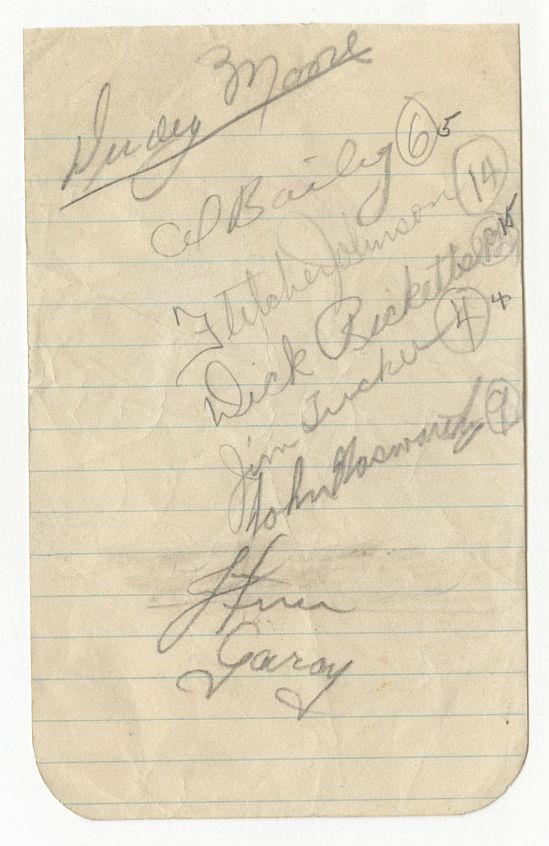 Dudey Moore
Al Bailey 6 5
Fletcher Johnson 14
Dick Ricketts 15
Jim Tucker 4 4
John 9
Garay